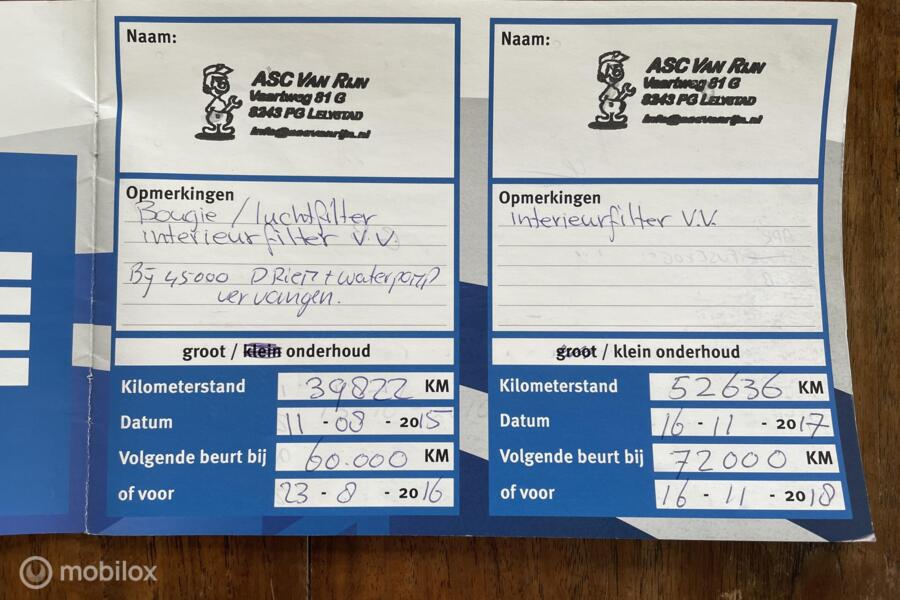 Naam:
ASC VAN RIJN
Vaartweg 81 G
8243 PG LELYSTAD
info@ascvanrijn.nl
Opmerkingen
Bougie / luchtfilter
interieurfilter v.v.
Bij 45000 D Riem + waterpomp
vervangen.
groot / klein onderhoud
Kilometerstand 39822 KM
Datum 11 - 08 - 2015
Volgende beurt bij 60.000 KM
of voor 23 - 8 - 2016
Naam:
ASC VAN RIJN
Vaartweg 81 G
8243 PG LELYSTAD
info@ascvanrijn.nl
Opmerkingen
interieurfilter v.v.
groot / klein onderhoud
Kilometerstand 52636 KM
Datum 16 - 11 - 2017
Volgende beurt bij 72000 KM
of voor 16 - 11 - 2018
mobilox